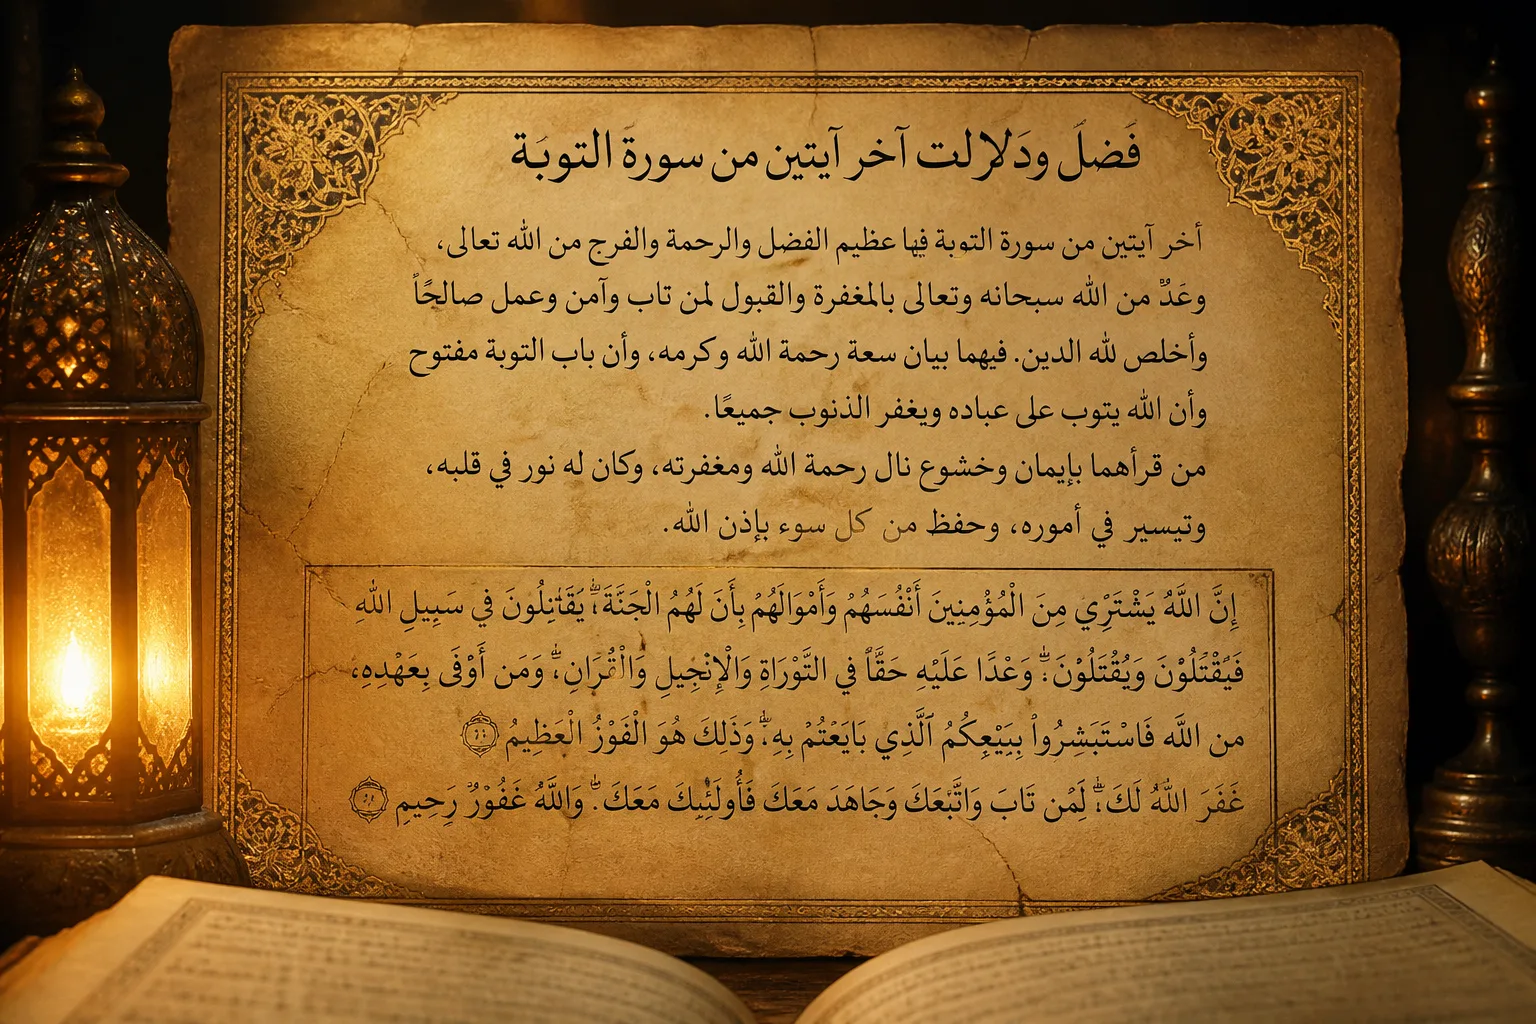 فَضلَ ودَلالت آخر آيتين من سورة التوبَة
أخر آيتين من سورة التوبة فيها عظيم الفضل والرحمة والفرج من الله تعالى،
وعَدٌ من الله سبحانه وتعالى بالمغفرة والقبول لمن تاب وآمن وعمل صالحًا
وأخلص لله الدين. فيهما بيان سعة رحمة الله وكرمه، وأن باب التوبة مفتوح
وأن الله يتوب على عباده ويغفر الذنوب جميعًا.
من قرأهما بإيمان وخشوع نال رحمة الله ومغفرته، وكان له نور في قلبه،
وتيسير في أموره، وحفظ من كل سوء بإذن الله.
إِنَّ اللَّهُ يَشْتَرِي مِنَ الْمُؤْمِنِينَ أَنْفُسَهُمْ وَأَمْوَالَهُمْ بِأَنَ لَهُمُ الْجَنَّةَ؛ يَقَاتِلُونَ فِي سَبِيلِ اللهِ
فَيَقْتَلُوْنَ وَيُقْتَلُونَ؛ وَعْدًا عَلَيْهِ حَقَّاً فِي التَّوْرَاةِ وَالْإِنْجِيلِ وَالْقُرَانِ، وَمَن أَوْفَى بِعَهْدِهِ،
من اللَّه فَاسْتَبَشِرُواْ بِبَيْعِكُمُ ٱلَّذِي بَايَعْتُمْ بِهِ؛ وَذَلِكَ هُوَ الْفَوْزُ الْعَظِيمُ
غَفَرَ اللهُ لَكَ؛ لِمَْن تَابَ وَاتَّبَعَكَ وَجَاهَدَ مَعَكَ فَأُولَئِكَ مَعَكَ. وَاللَّهُ غَفُوْرٌ رَحِيمِ